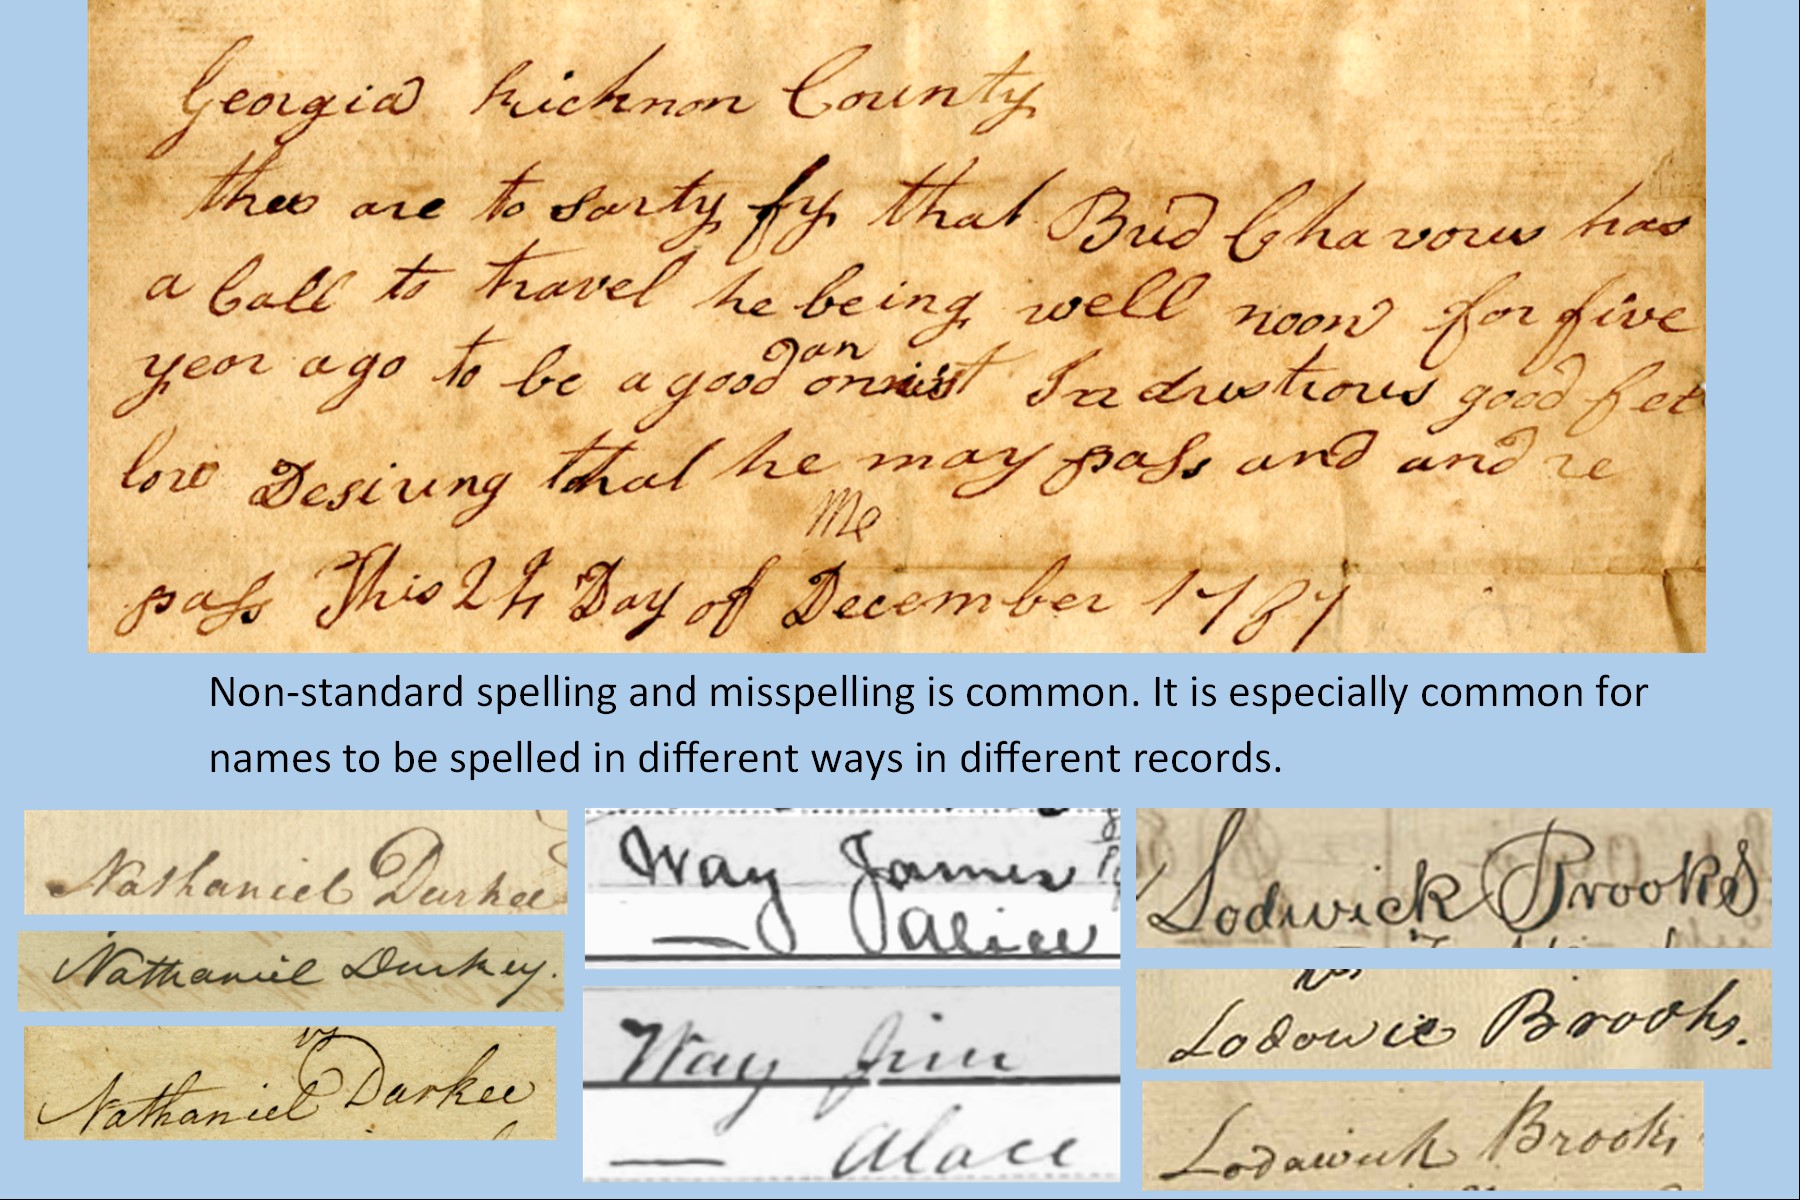 Georgia Richnon County
thes are to sarty fy that Bud Chavous has
a Call to travel he being well noon for five
year ago to be a good an onnist Industrous good fel
low Desiring that he may pass and and re
Me
pass This 24 Day of December 1787
Non-standard spelling and misspelling is common. It is especially common for
names to be spelled in different ways in different records.
Nathaniel Durkee
Nathaniel Durkey.
Nathaniel Darkee
Way James
— Alice
Way Jim
— Alace
Lodwick Brooks
Lodowic Brooks.
Lodawick Brooks